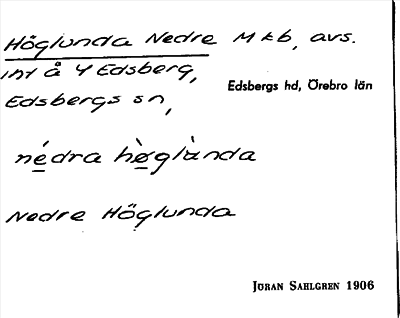 Höglunda Nedre Mtb, avs.
int å 4 Edsberg,
Edsbergs sn,
Edsbergs hd, Örebro län
nédra hø̀glùnda
Nedre Höglunda
JÖRAN SAHLGREN 1906